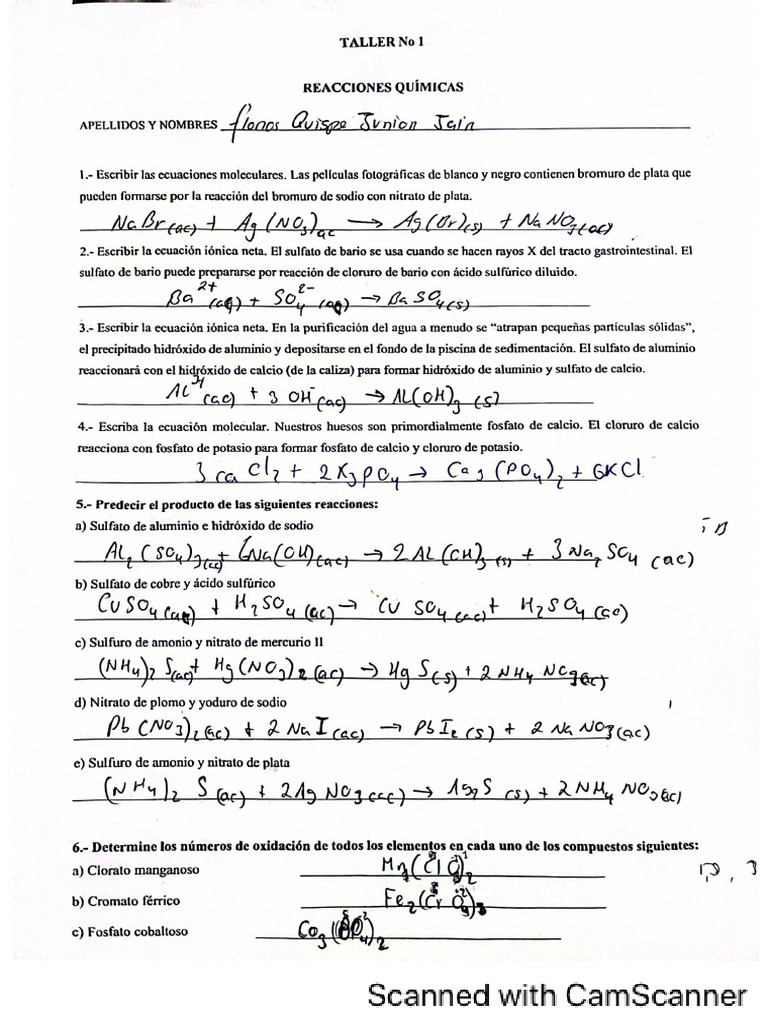 TALLER No 1
REACCIONES QUÍMICAS
APELLIDOS Y NOMBRES Flores Quispe Junior Jain
1.- Escribir las ecuaciones moleculares. Las películas fotográficas de blanco y negro contienen bromuro de plata que
pueden formarse por la reacción del bromuro de sodio con nitrato de plata.
NaBr(ac) + Ag(NO3)ac → Ag(Br)(s) + NaNO3(ac)
2.- Escribir la ecuación iónica neta. El sulfato de bario se usa cuando se hacen rayos X del tracto gastrointestinal. El
sulfato de bario puede prepararse por reacción de cloruro de bario con ácido sulfúrico diluido.
Ba2+(aq) + SO4 2-(aq) → BaSO4(s)
3.- Escribir la ecuación iónica neta. En la purificación del agua a menudo se “atrapan pequeñas partículas sólidas”,
el precipitado hidróxido de aluminio y depositarse en el fondo de la piscina de sedimentación. El sulfato de aluminio
reaccionará con el hidróxido de calcio (de la caliza) para formar hidróxido de aluminio y sulfato de calcio.
Al3+(ac) + 3 OH-(ac) → AL(OH)3 (s)
4.- Escriba la ecuación molecular. Nuestros huesos son primordialmente fosfato de calcio. El cloruro de calcio
reacciona con fosfato de potasio para formar fosfato de calcio y cloruro de potasio.
3 CaCl2 + 2K3PO4 → Ca3(PO4)2 + 6KCl
5.- Predecir el producto de las siguientes reacciones:
a) Sulfato de aluminio e hidróxido de sodio
AL2(SO4)3(ac) + 6Na(OH)(ac) → 2AL(OH)3(s) + 3Na2SO4(ac)
b) Sulfato de cobre y ácido sulfúrico
CuSO4(aq) + H2SO4(ac) → CuSO4(ac) + H2SO4(ac)
c) Sulfuro de amonio y nitrato de mercurio II
(NH4)2S(ac) + Hg(NO3)2(ac) → HgS(s) + 2NH4NO3(ac)
d) Nitrato de plomo y yoduro de sodio
Pb(NO3)2(ac) + 2NaI(ac) → PbI2(s) + 2NaNO3(ac)
e) Sulfuro de amonio y nitrato de plata
(NH4)2S(ac) + 2AgNO3(ac) → Ag2S(s) + 2NH4NO3(ac)
6.- Determine los números de oxidación de todos los elementos en cada uno de los compuestos siguientes:
a) Clorato manganoso
b) Cromato férrico
c) Fosfato cobaltoso
Scanned with CamScanner